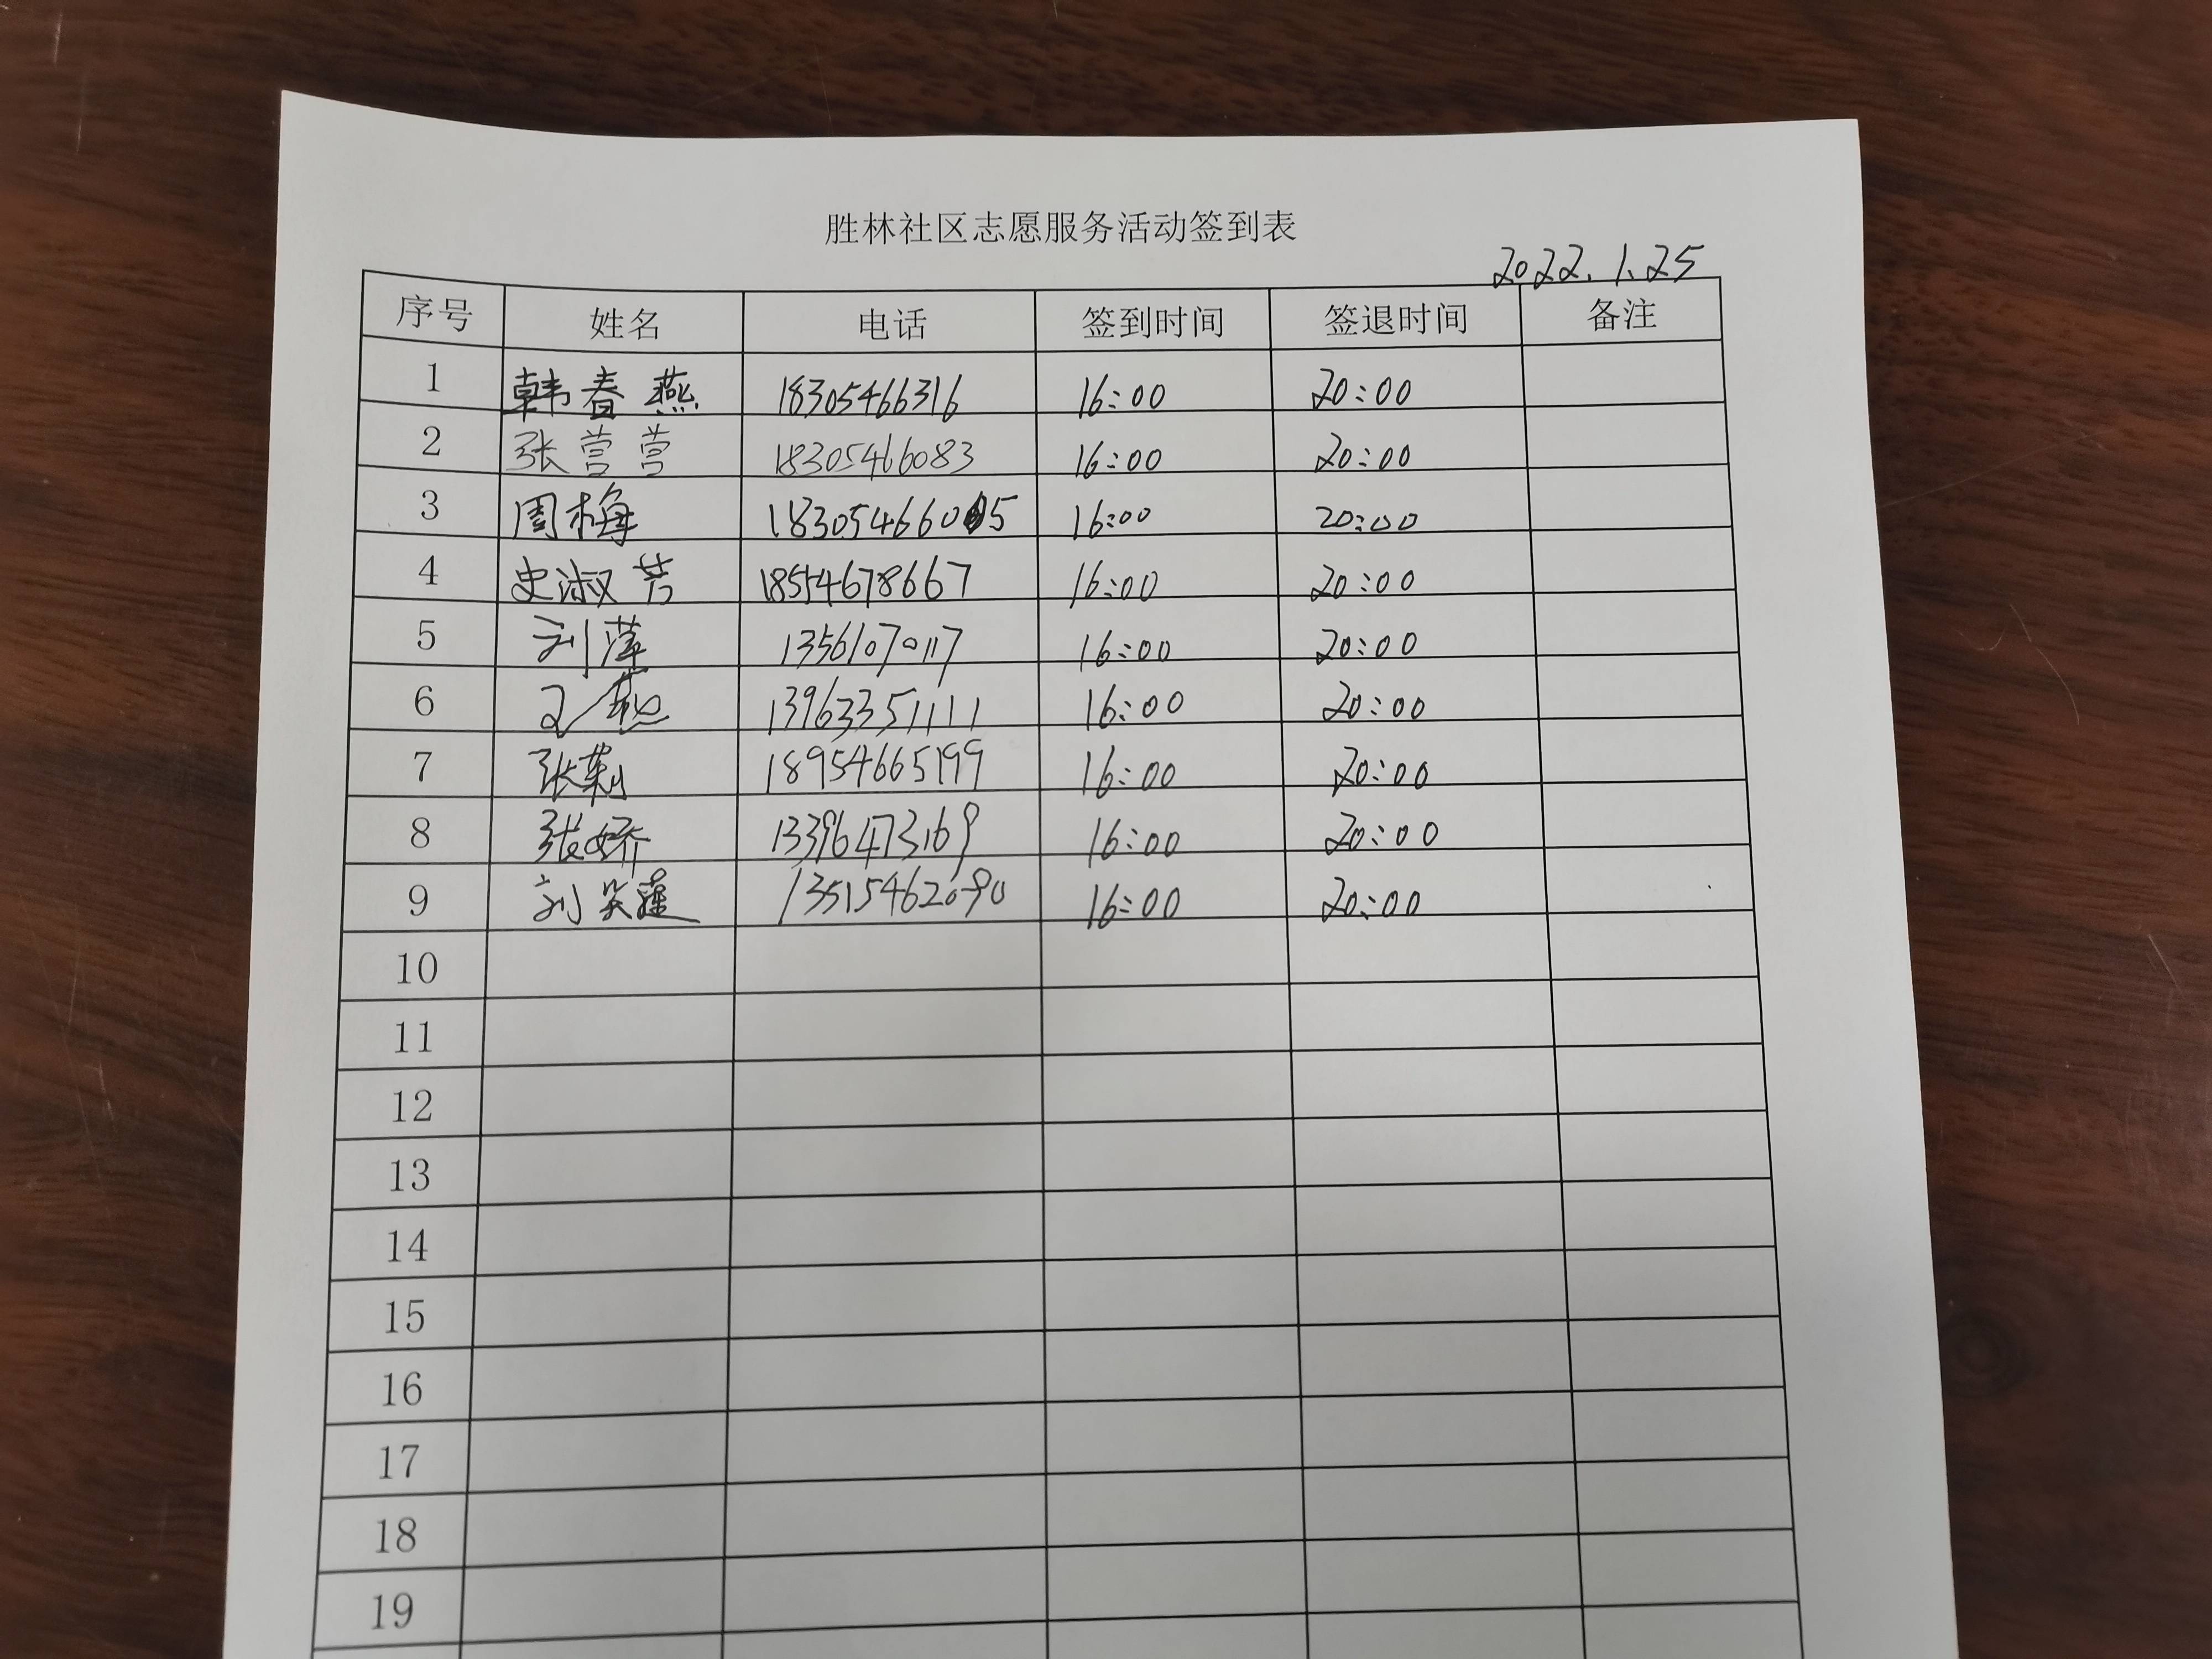 胜林社区志愿服务活动签到表
2022.1.25
序号 姓名 电话 签到时间 签退时间 备注
1 韩春燕 18305466316 16:00 20:00
2 张营营 18305466083 16:00 20:00
3 周梅 183054660 5 16:00 20:00
4 史淑芳 18554678667 16:00 20:00
5 刘萍 13561070117 16:00 20:00
6 王艳 13963351111 16:00 20:00
7 张莉 18954665199 16:00 20:00
8 张娇 13396473169 16:00 20:00
9 刘笑莲 13515462090 16:00 20:00
10
11
12
13
14
15
16
17
18
19